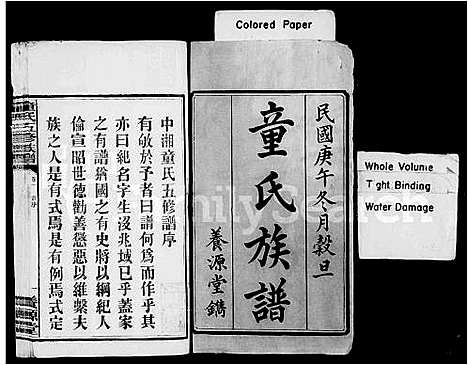 Colored Paper
Whole Volume
Tight Binding
Water Damage
民國庚午冬月穀旦
童氏族譜
養源堂鐫
中湘童氏五修譜序
有敂於予者曰譜何爲而作乎其
亦曰紀名字生沒兆域已乎蓋家
之有譜猶國之有史將以綱紀人
倫宣昭世德勸善懲惡以維繫夫
族之人是有式焉是有例焉式定
童氏五修族譜
養源堂
FamilySearch